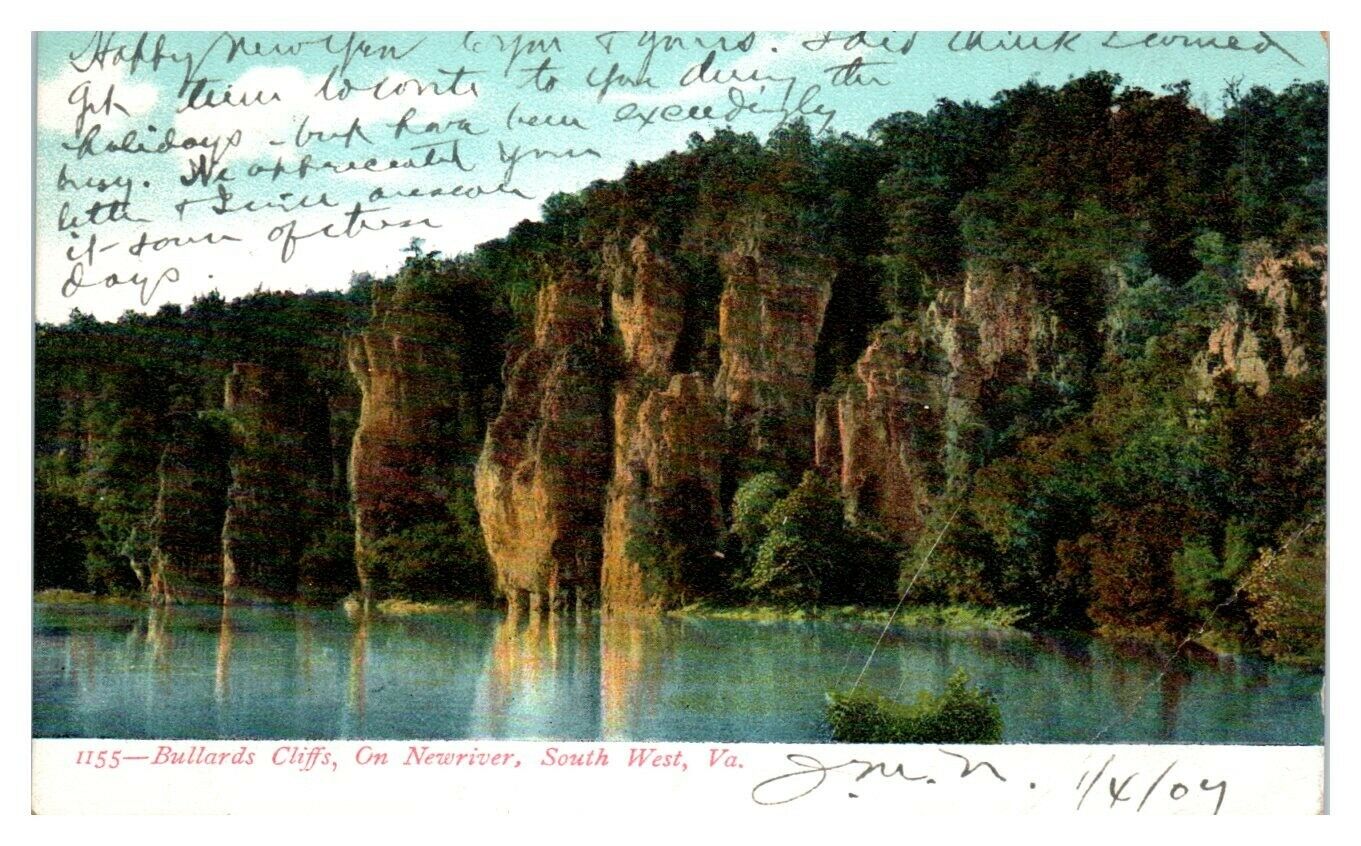 Happy New Year to you & yours. I did think I would
get time to write to you during the
holidays - but have been exceedingly
busy. We appreciated your
letter & I will answer
it some of these
days.
1155—Bullards Cliffs, On Newriver, South West, Va.
J.M.N. 1/4/07